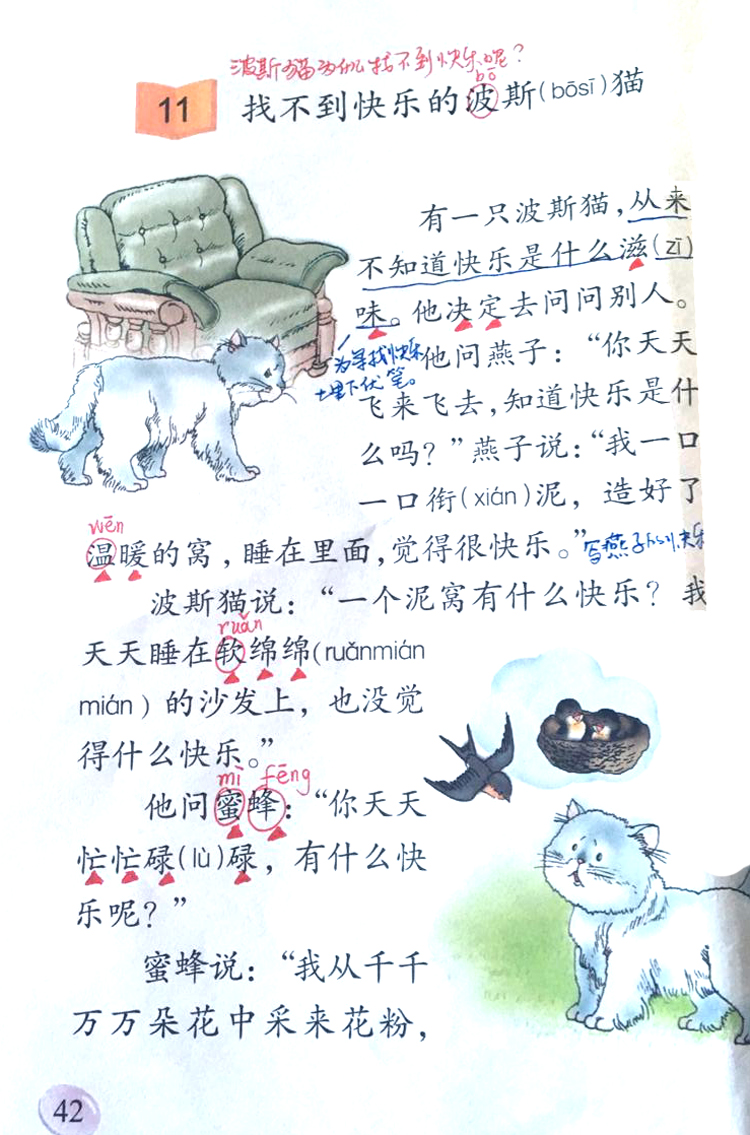 波斯猫为什么找不到快乐呢？
bō
11 找不到快乐的波斯(bōsī)猫
有一只波斯猫，从来
不知道快乐是什么滋(zī)
味。他决定去问问别人。
为寻找快乐
埋下伏笔。
他问燕子：“你天天
飞来飞去，知道快乐是什
么吗？”燕子说：“我一口
一口衔(xián)泥，造好了
wēn
温暖的窝，睡在里面，觉得很快乐。”
写燕子的快乐
波斯猫说：“一个泥窝有什么快乐？我
ruǎn
天天睡在软绵绵(ruǎnmián
mián)的沙发上，也没觉
得什么快乐。”
mì fēng
他问蜜蜂：“你天天
忙忙碌(lù)碌，有什么快
乐呢？”
蜜蜂说：“我从千千
万万朵花中采来花粉，
42